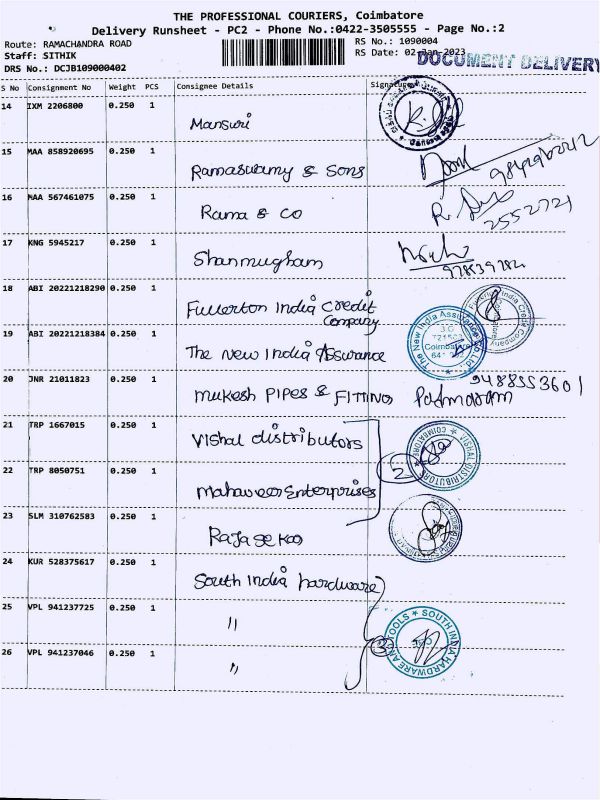 THE PROFESSIONAL COURIERS, Coimbatore
Delivery Runsheet - PC2 - Phone No.:0422-3505555 - Page No.:2
Route: RAMACHANDRA ROAD
Staff: SITHIK
DRS No.: DCJB109000402
RS No.: 1090004
RS Date: 02-Jan-2023
DOCUMENT DELIVERY
S No Consignment No Weight PCS Consignee Details Signature
14 IXM 2206800 0.250 1
Mansuri
15 MAA 858920695 0.250 1
Ramaswamy & Sons
16 MAA 567461075 0.250 1
Rama & Co
2552721
17 KNG 5945217 0.250 1
Shanmugham
18 ABI 20221218290 0.250 1
Fullerton India Credit
Company
19 ABI 20221218384 0.250 1
The New India Assurance
The New India Assurance Co Ltd
Coimbatore
20 JNR 21011823 0.250 1
Mukesh PIPES & FITTING
9488553601
21 TRP 1667015 0.250 1
Vishal distributors
VISHAL DISTRIBUTORS
COIMBATORE
22 TRP 8050751 0.250 1
2
Mahaveer Enterprises
23 SLM 310762583 0.250 1
24 KUR 528375617 0.250 1
South India hardware
25 VPL 941237725 0.250 1
"
SOUTH INDIA HARDWARE AND TOOLS
3
26 VPL 941237046 0.250 1
"